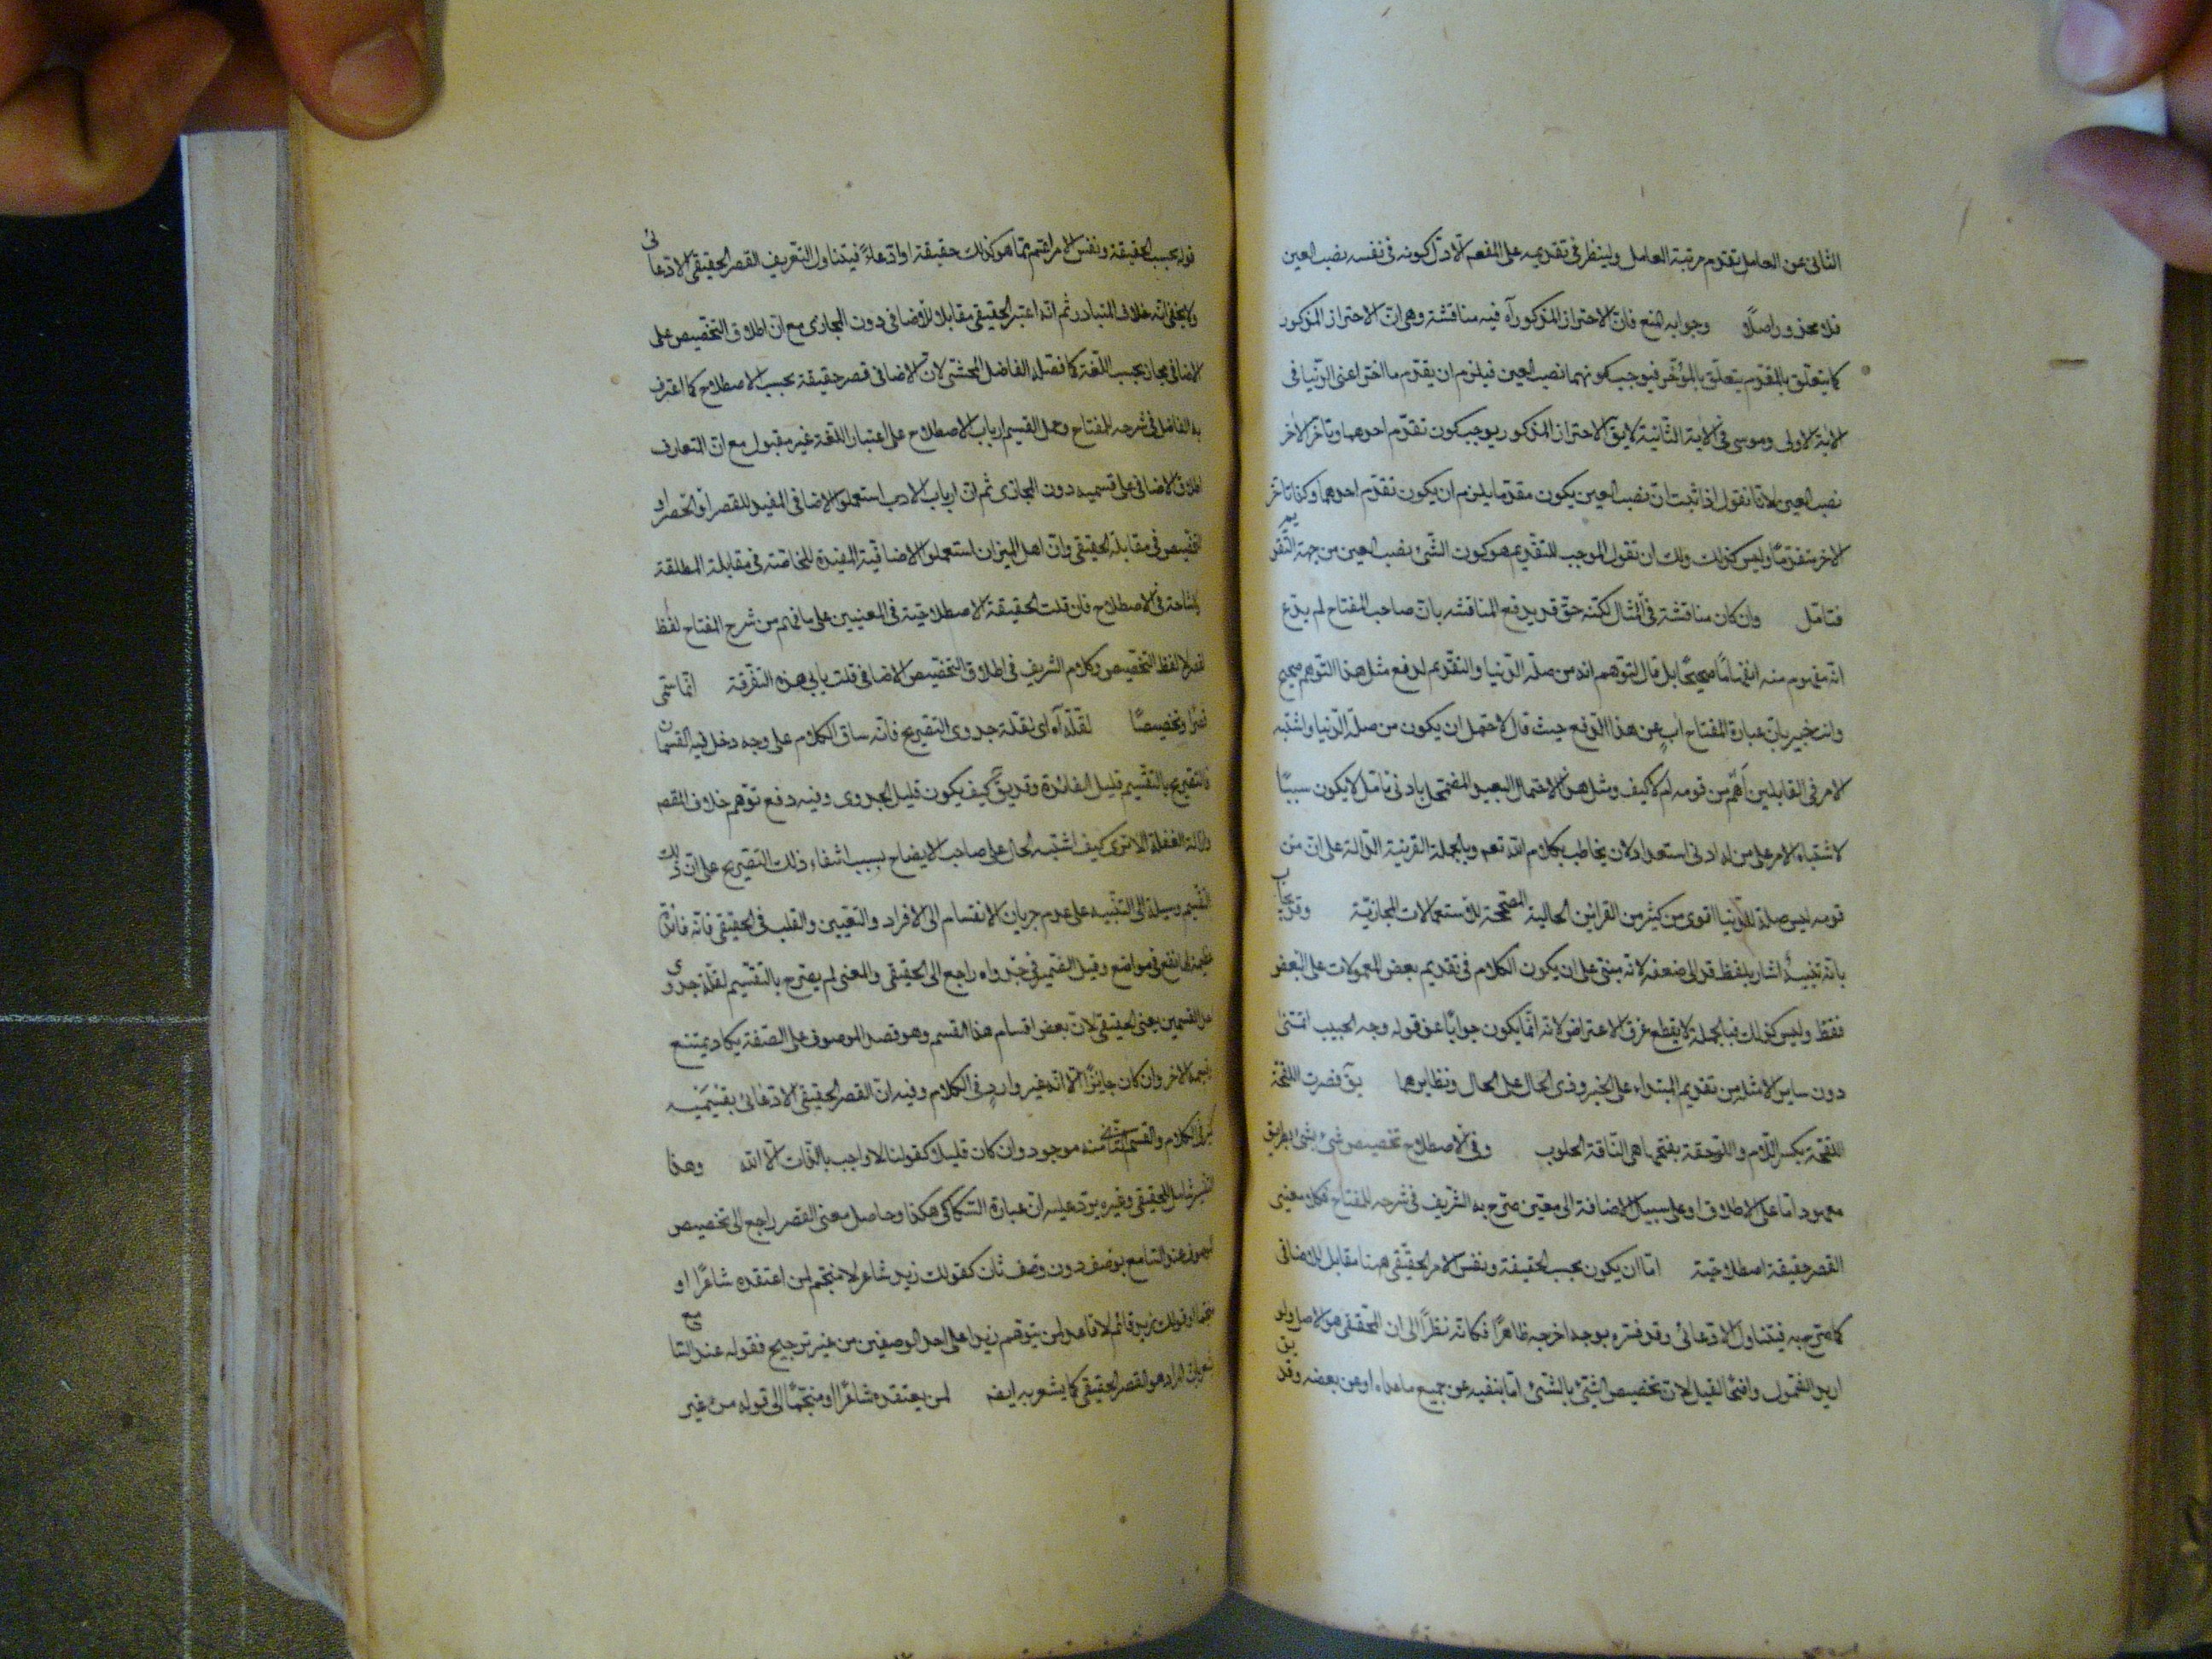 الثانى عن العامل تقدم مرتبة العامل ولينظر فى تقديمه على المفعم الا دل كونه فى نفسه نصب العين
فلا محذور اصلا وجوابه المنع فان الاحتراز المذكور آه فيه مناقشة وهى ان الاحتراز المذكور
كما يتعلق بالمقدم يتعلق بالمؤخر فيوجب كونهما نصب العين فيلزم ان يقدم ما اخر اعنى الدنيا فى
الاية الاولى وموسى فى الاية الثانية لا يق الاحتراز المذكور يوجب كون تقدم احدهما وتأخر الاخر
نصب العين لانا نقول اذا ثبت ان نصب العين يكون مقدما يلزم ان يكون تقدم احدهما وكذا تأخر
الاخر متقدما وليس كذلك ولك ان تقول الموجب للتقديم هو كون الشئ نصب العين من جهة التقديم
فتامل وان كان مناقشة فى المثال لكنه حق قد يدفع المناقشه بان صاحب المفتاح لم يدع
انه مفهوم منه انفهاما صحيحا بل قال لتوهم انه من صلة الدنيا والتقديم لدفع مثل هذا التوهم صحيح
وانت خبير بان عبارة المفتاح اب عن هذا الدفع حيث قال لاحتمل ان يكون من صلة الدنيا واشتبه
الامر فى القابلين أهم من قومه ام لا كيف ومثل هذا الاحتمال البعيد المضمحل بادنى تأمل لا يكون سببا
لاشتباه الامر على من له ادنى استعداد لان يخاطب بكلام الله تعم وبالجملة القرينة الدالة على ان من
قومه ليس صلة للدنيا اقوى من كثير من القرائن الحالية المصححة للاستعمالات المجازية وقد يجاب
بانه تنبيه اشار بلفظ قد الى ضعفه لانه مبنى على ان يكون الكلام فى تقديم بعض المعمولات على البعض
فقط وليس كذلك فبالجملة لا يقطع عرق الاعتراض لانه انما يكون جوابا عن قوله وجه الحبيب اتمنى
دون ساير الامثلة من تقديم المبتداء على الخبر وذى الحال على الحال ونظايرهما يق قصرت اللقحة
اللقحة بكسر اللام واللقحة بفتحها هى الناقة الحلوب وفى الاصطلاح تخصيص شئ بشئ بطريق
معهود اما على الاطلاق او على سبيل الاضافة الى معين صرح به الشريف فى شرحه للمفتاح فكلا معنيى
القصر حقيقة اصطلاحية اما ان يكون بحسب الحقيقة ونفس الامر الحقيقى ههنا مقابل للاضافى
كما صرح به فيتناول الادعائى وقد فسره بوجه اخرجه ظاهرا فكانه نظرا الى ان الحقيقى هو الاصل ولو
اريد الشمول واضحا لقيل لان تخصيص الشئ بالشئ اما بنفيه عن جميع ما عداه او عن بعضه وقد يق
قوله بحسب الحقيقة ونفس الامر اعم مما هو كذلك حقيقة او ادعاء فيتناول التعريف القصر الحقيقى الادعائى
ولا يخفى انه خلاف المتبادر ثم انه اعتبر الحقيقى مقابلا للاضافى دون المجازى مع ان اطلاق التخصيص على
الاضافى مجاز بحسب اللغة كما فصله الفاضل المحشى لان الاضافى قصر حقيقة بحسب الاصطلاح كما اعترف
به الفاضل فى شرحه للمفتاح وحمل القسيم ارباب الاصطلاح على اعتبار اللغة غير مقبول مع ان المتعارف
اطلاق الاضافى على قسميه دون المجازى ثم ان ارباب الادب استعملوا الاضافى المفيد للقصر او الحصر او
التخصيص فى مقابلة الحقيقى وان اهل الميزان استعملوا الاضافية المفيدة للخاصة فى مقابلة المطلقة
ولا مشاحة فى الاصطلاح فان قلت الحقيقة الاصطلاحية فى المعنيين على ما فهم من شرح المفتاح لفظ
القصر لا لفظ التخصيص وكلام الشريف فى اطلاق التخصيص الاضافى قلت يابى هذه التفرقة انما سمى
قصرا وتخصيصا لقلة آه اى لقلة جدوى التصريح فانه ساق الكلام على وجه دخل فيه القسمان
فالتصريح بالتقسيم قليل الفائدة وقد يق كيف يكون قليل الجدوى وفيه دفع توهم خلاف المقصد
وازالة الغفلة الا ترى كيف اشتبه الحال على صاحب الايضاح بسبب انتفاء ذلك التصريح على ان ذلك
التقسيم وسيلة الى التنبيه على عدم جريان الانقسام الى الافراد والتعيين والقلب فى الحقيقى فانه فائدة
عظيمة لها نفع فى مواضع وقيل الضمير فى جدواه راجع الى الحقيقى والمعنى لم يصرح بالتقسيم لقلة جدوى
احد القسمين يعنى الحقيقى لان بعض اقسام هذا القسم وهو قصر الموصوف على الصفة يكاد يمتنع
وقسمه الاخر وان كان جايزا الا انه غير وارد فى الكلام وفيه ان القصر الحقيقى الادعائى بقسميه
كثير فى الكلام والقسم الثانى منه موجود وان كان قليلا كقولنا لا واجب بالذات الا الله وهذا
التفسير شامل للحقيقى وغيره يرد عليه ان عبارة السكاكى هكذا وحاصل معنى القصر راجع الى تخصيص
الموصوف عند السامع بوصف دون وصف ثان كقولك زيد شاعر لا منجم لمن اعتقده شاعرا او
منجما او قولك زيد قائم لا قاعد لمن يتوهم زيدا على احد الوصفين من غير ترجيح فقوله عند السامع
يشعر بان المراد هو القصر الحقيقى كما يشعر به ايضه لمن يعتقده شاعرا او منجما الى قوله من غير